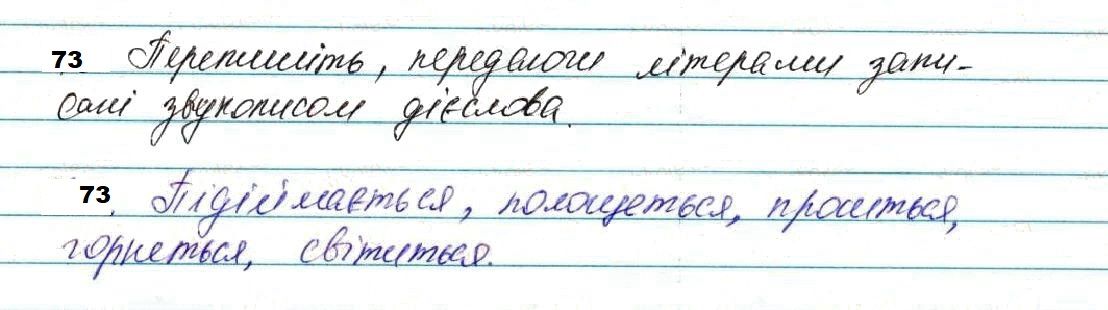 73 Перепишіть, передаючи літерами запи-
сані звукописом дієслова.
73. Підіймається, полощеться, проситься,
горнеться, світиться.